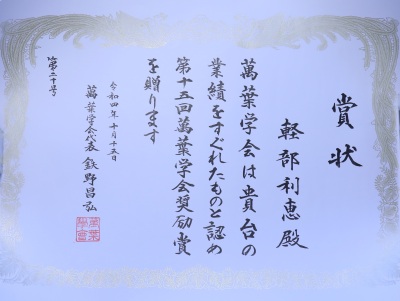 賞状
軽部利恵殿
萬葉学会は貴台の
業績をすぐれたものと認め
第十五回萬葉学会奨励賞
を贈ります
令和四年十月十五日
萬葉学会代表 鉄野昌弘
第二十号
萬葉
學會